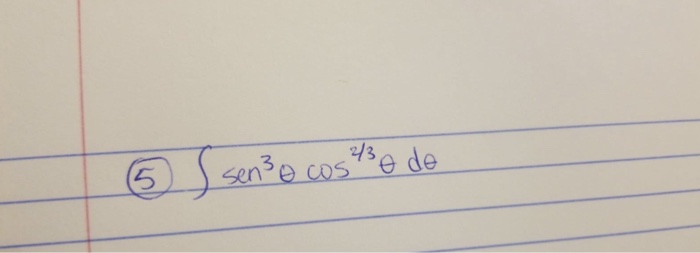 ⑤ ∫ sen³θ cos^{2/3} θ dθ